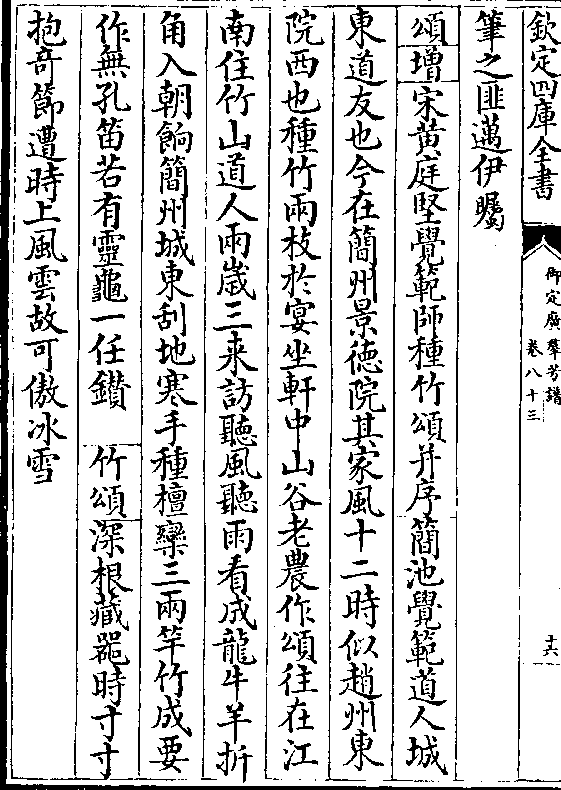 欽定四庫全書
御定廣羣芳譜
卷八十三
十六
筆之匪邁伊矚
頌增宋黄庭堅覺範師種竹頌并序簡池覺範道人城
東道友也今在簡州景徳院其家風十二時似趙州東
院西也種竹兩枝於宴坐軒中山谷老農作頌往在江
南住竹山道人兩歳三来訪聽風聽雨看成龍牛羊折
角入朝餉簡州城東刮地寒手種檀欒三兩竿竹成要
作無孔笛若有靈龜一任鑽　竹頌深根藏器時寸寸
抱奇節遭時上風雲故可傲冰雪